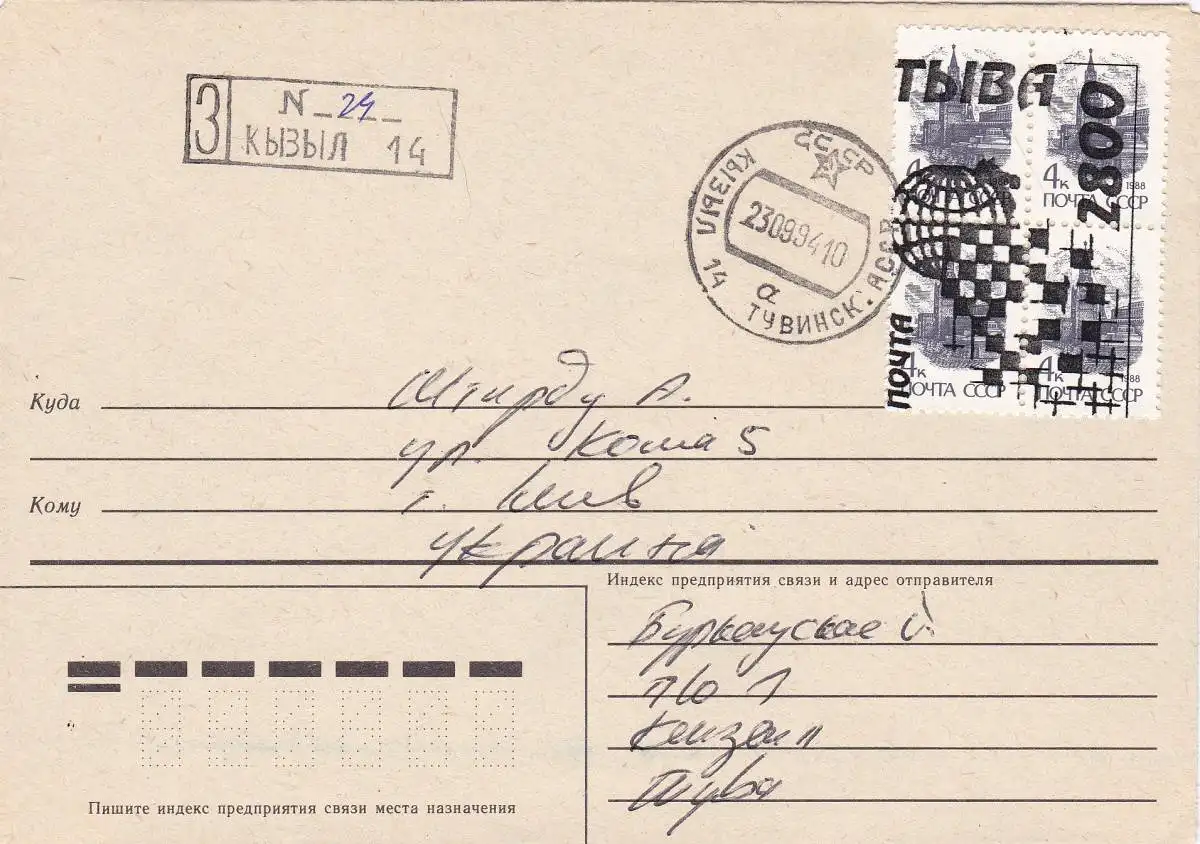 З N 24
КЫЗЫЛ 14
СССР
КЫЗЫЛ 14
23099410
а
ТУВИНСК. АССР
ТЫВА
2800
ПОЧТА
4к
4к 1988
ПОЧТА СССР
4к
ПОЧТА СССР
4к 1988
ПОЧТА СССР
Куда
Штирду А.
ул. Коша 5
Кому
г. Киев
Украина
Индекс предприятия связи и адрес отправителя
п/о 1
Кызыл
Тува
Пишите индекс предприятия связи места назначения